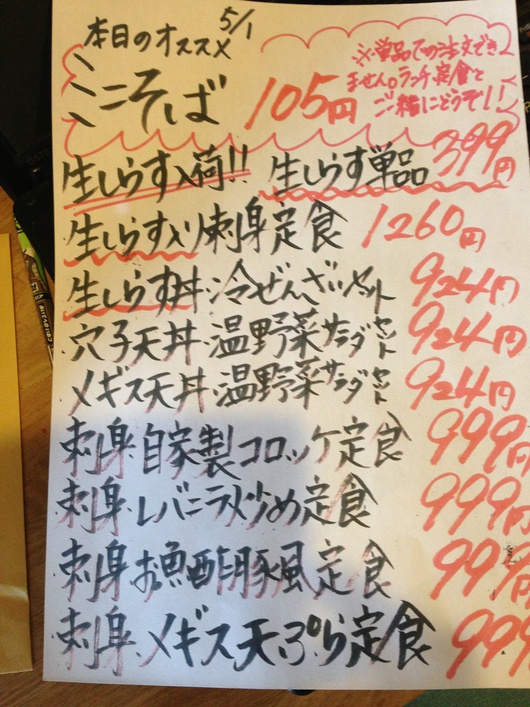 本日のオススメ 5/1
ミニそば 105円
※単品での注文できません。ランチ、定食と
ご一緒にどうぞ!!
生しらす入荷!! 生しらす単品 399円
生しらす入り刺身定食 1260円
生しらす丼・冷ぜんざいセット 924円
穴子天丼・温野菜サラダセット 924円
メギス天丼・温野菜サラダセット 924円
刺身・自家製コロッケ定食 999円
刺身・レバニラ炒め定食 999
刺身・お魚酢豚風定食 999
刺身・メギス天ぷら定食 999